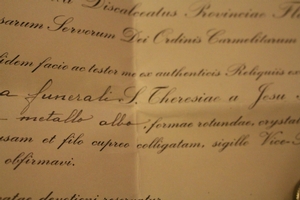 Discalceatus Provinciae
sarum Servorum Dei Ordinis Carmelitarum
idem facio ac testor me ex authenticis Reliquiis ex
a funerali S. Theresiae a Jesu
metallo albo, formae rotundae, crystal
usam et filo cupreo colligatam, sigillo Vice-
obfirmavi.
devotioni